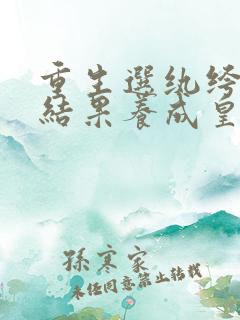 重生選紈絝
結果養成皇
孫寒家
未經同意禁止轉載